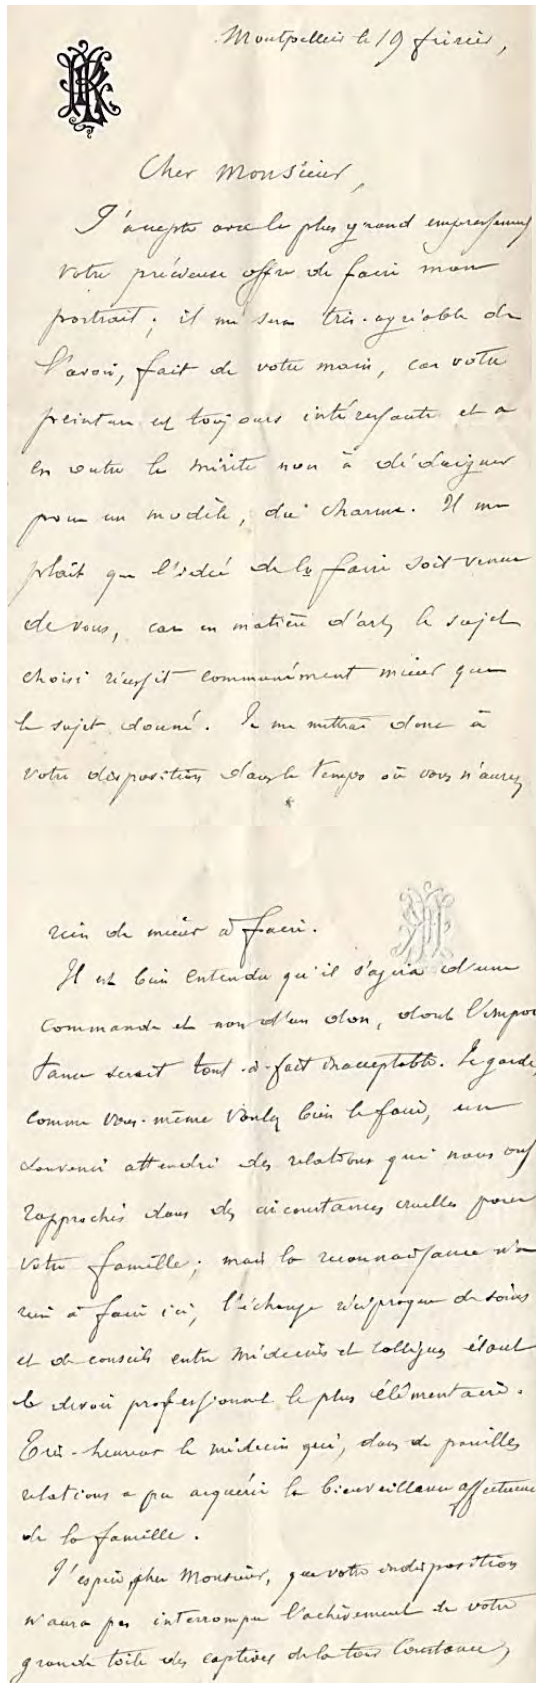 Montpellier le 19 février,
Cher Monsieur,
J'accepte avec le plus grand empressement
votre précieuse offre de faire mon
portrait ; il me sera très-agréable de
l'avoir, fait de votre main, car votre
peinture est toujours intéressante et a
en outre le mérite non à dédaigner
pour un modèle, du charme. Il me
plait que l'idée de le faire soit venue
de vous, car en matière d'art, le sujet
choisi réussit communément mieux que
le sujet donné. Je me mettrai donc à
votre disposition dans le temps où vous n'aurez
rien de mieux à faire.
Il est bien entendu qu'il s'agira d'une
commande et non d'un don, dont l'impor
tance serait tout-à-fait inacceptable. Je garde,
comme vous-même voulez bien le faire, un
souvenir attendri des relations qui nous ont
rapprochés dans des circonstances cruelles pour
votre famille ; mais la reconnaissance n'a
rien à faire ici, l'échange réciproque de soins
et de conseils entre médecins et collègues étant
le devoir professionnel le plus élémentaire.
Très-heureux le médecin qui, dans de pareilles
relations a pu acquérir la bienveillance affectueuse
de la famille.
J'espère, cher Monsieur, que votre indisposition
n'aura pas interrompu l'achèvement de votre
grande toile des captives de la tour Constance,